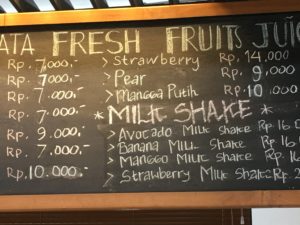 ATA FRESH FRUITS JUIC
Rp. 7.000,-
Rp. 7.000,-
Rp. 7.000,-
Rp. 7.000,-
Rp. 9.000,-
Rp. 7.000,-
Rp. 10.000,-
> Strawberry Rp. 14,000
> Pear Rp. 9,000
> Mangga Putih Rp. 10.000
* MILK SHAKE *
> Avocado Milk Shake Rp 16.0
> Banana Milk Shake Rp 16
> Manggo Milk Shake Rp 16
> Strawberry Milk Shake Rp. 2